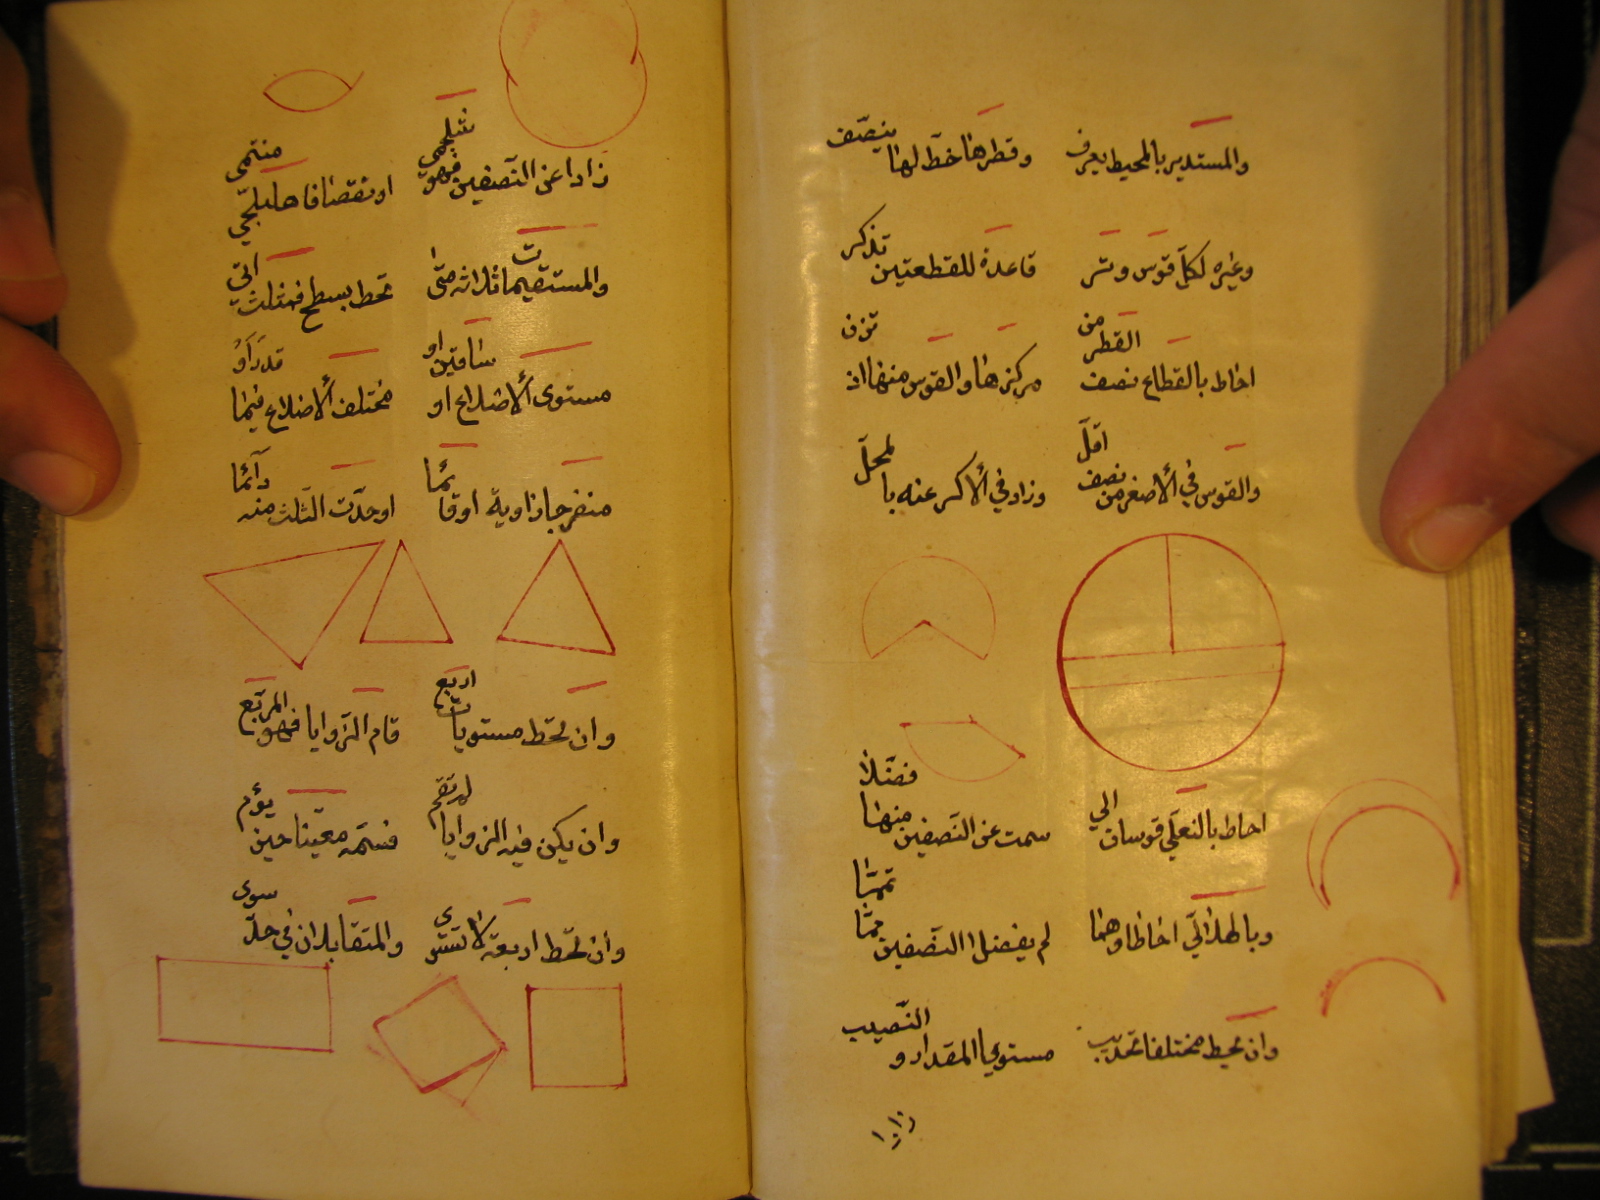 والمستدير بالمحيط يعرف وقطرها خط لها ينصف
وغيره لكل قوس وتر قاعدة للقطعتين تذكر
احاط بالقطاع نصف القطر من مركزها والقوس منها اذ تزن
والقوس في الأصغر من نصف اقل وزاد في الأكبر عنه بالمحل
احاط بالنعلي قوسان الي سمت عن النصفين منها فضلا
وبالهلالي احاطا وهما لم يفضلا النصفين مما تمما
وان يحط مختلفا تحدب مستوي المقدار والنصيب
زادا
زادا عن النصفين فهو شلجمي او نقصا فاهليلجي منتمى
والمستقيمات ثلاثة متى تحط بسطح فمثلث اتى
مستوى الأضلاع او ساقين او مختلف الأضلاع فيما قد رأوا
منفرجا زاوية او قائما او حدت الثلث منه دائما
وان تحط مستويات اربع قام الزوايا فهو المربع
وان يكن فيه الزوايا لم تقم فسمه معينا حين يؤم
وان تحط اربعة لا تستوى والمتقابلان في حد سوى